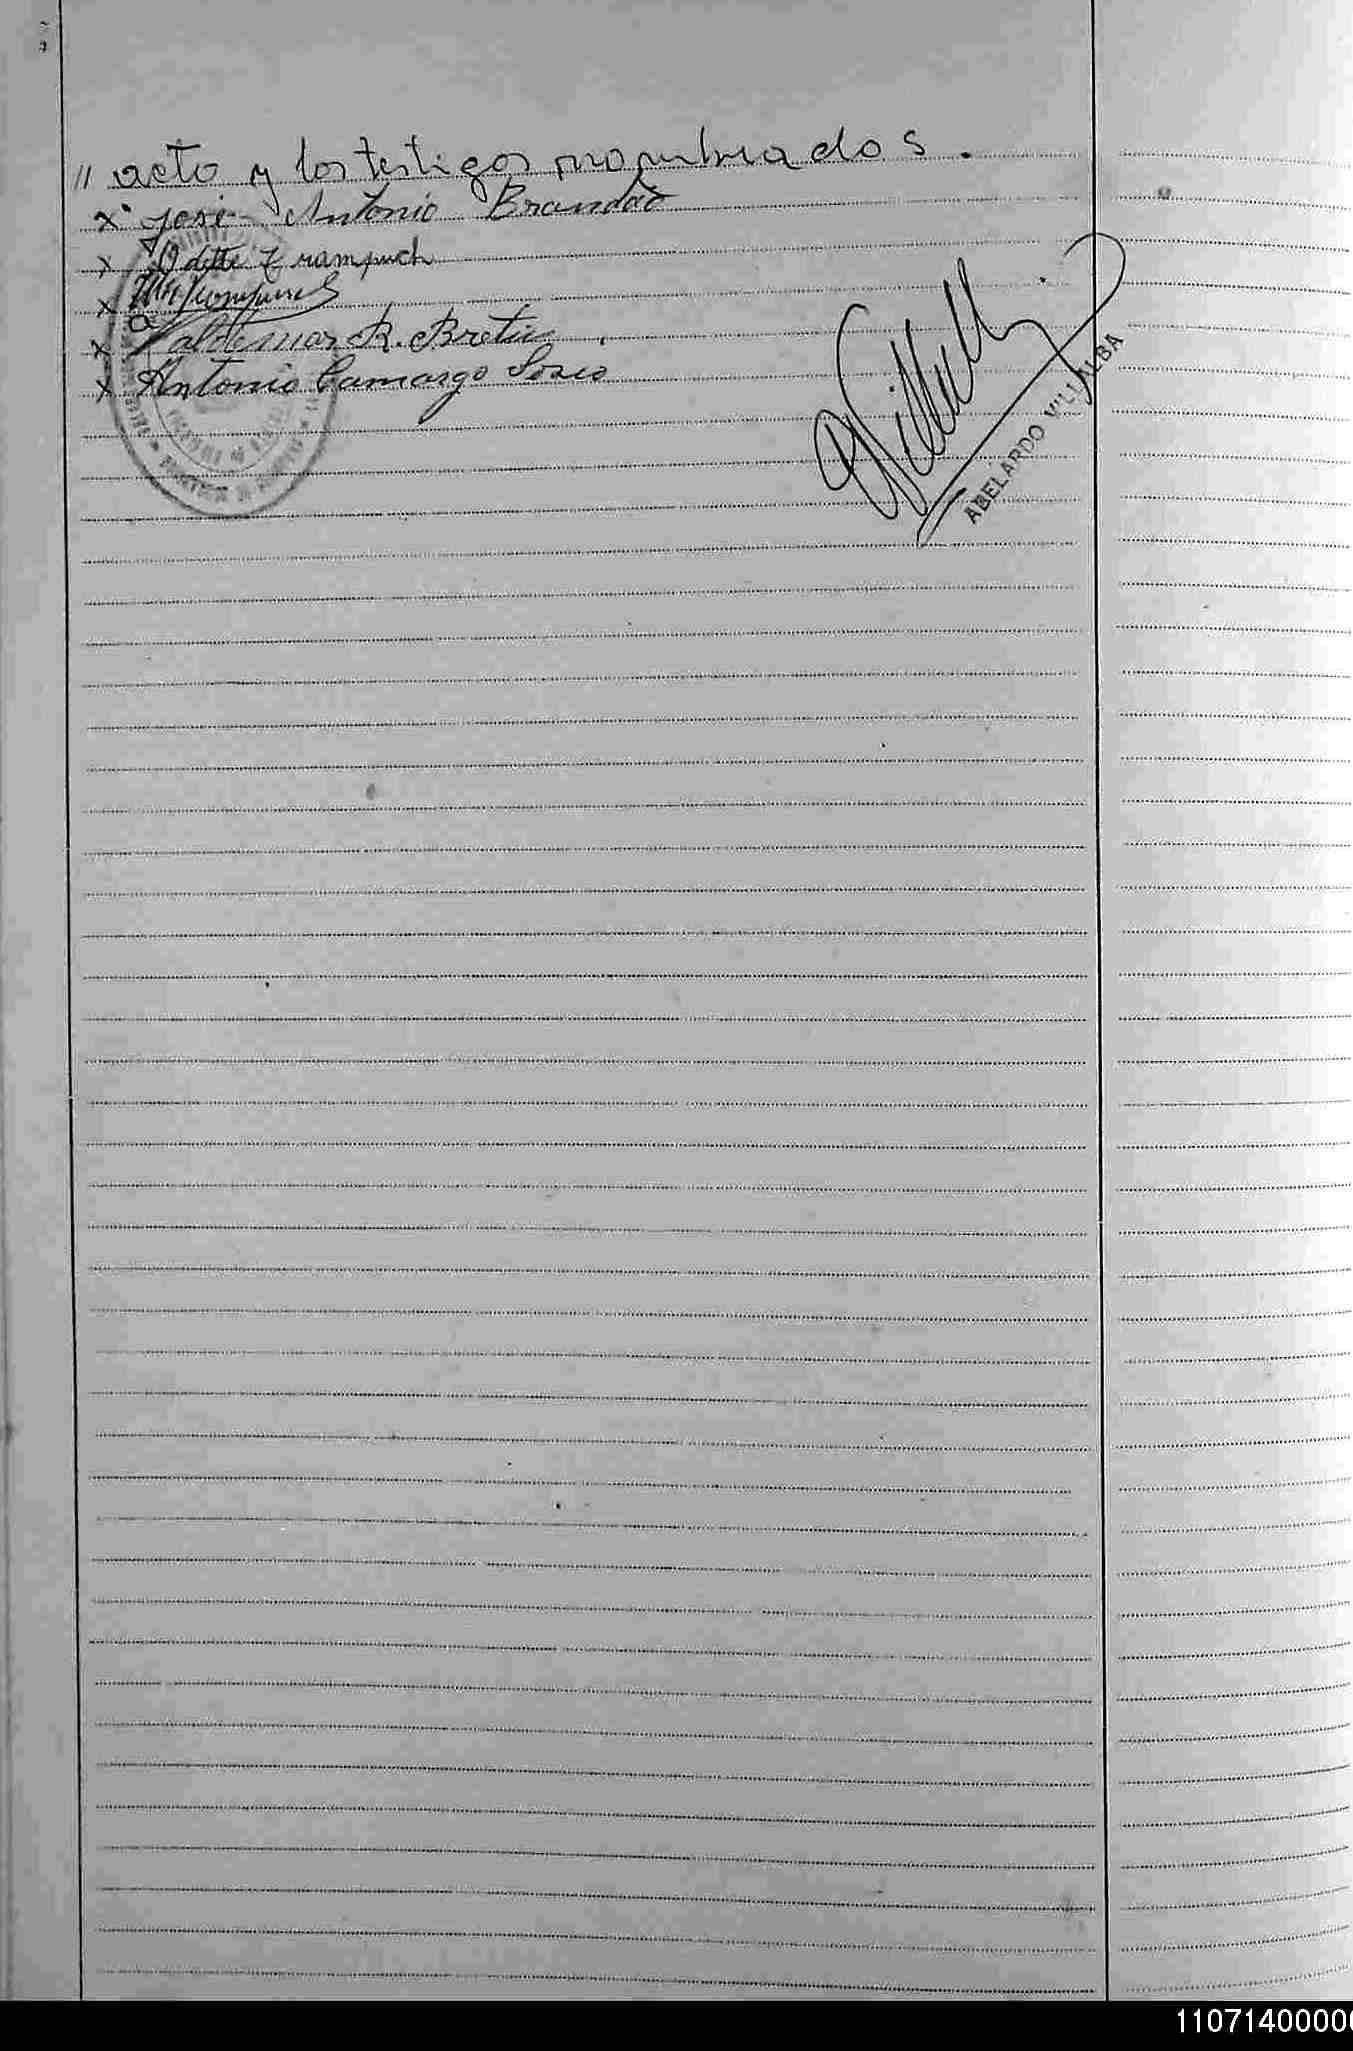 // acto y los testigos nombrados.
x José Antonio Brandão
x Odette Z rampuch
x
x Valdemar R. Bretin
x Antonio Camargo
ABELARDO VILLALBA
11071400000